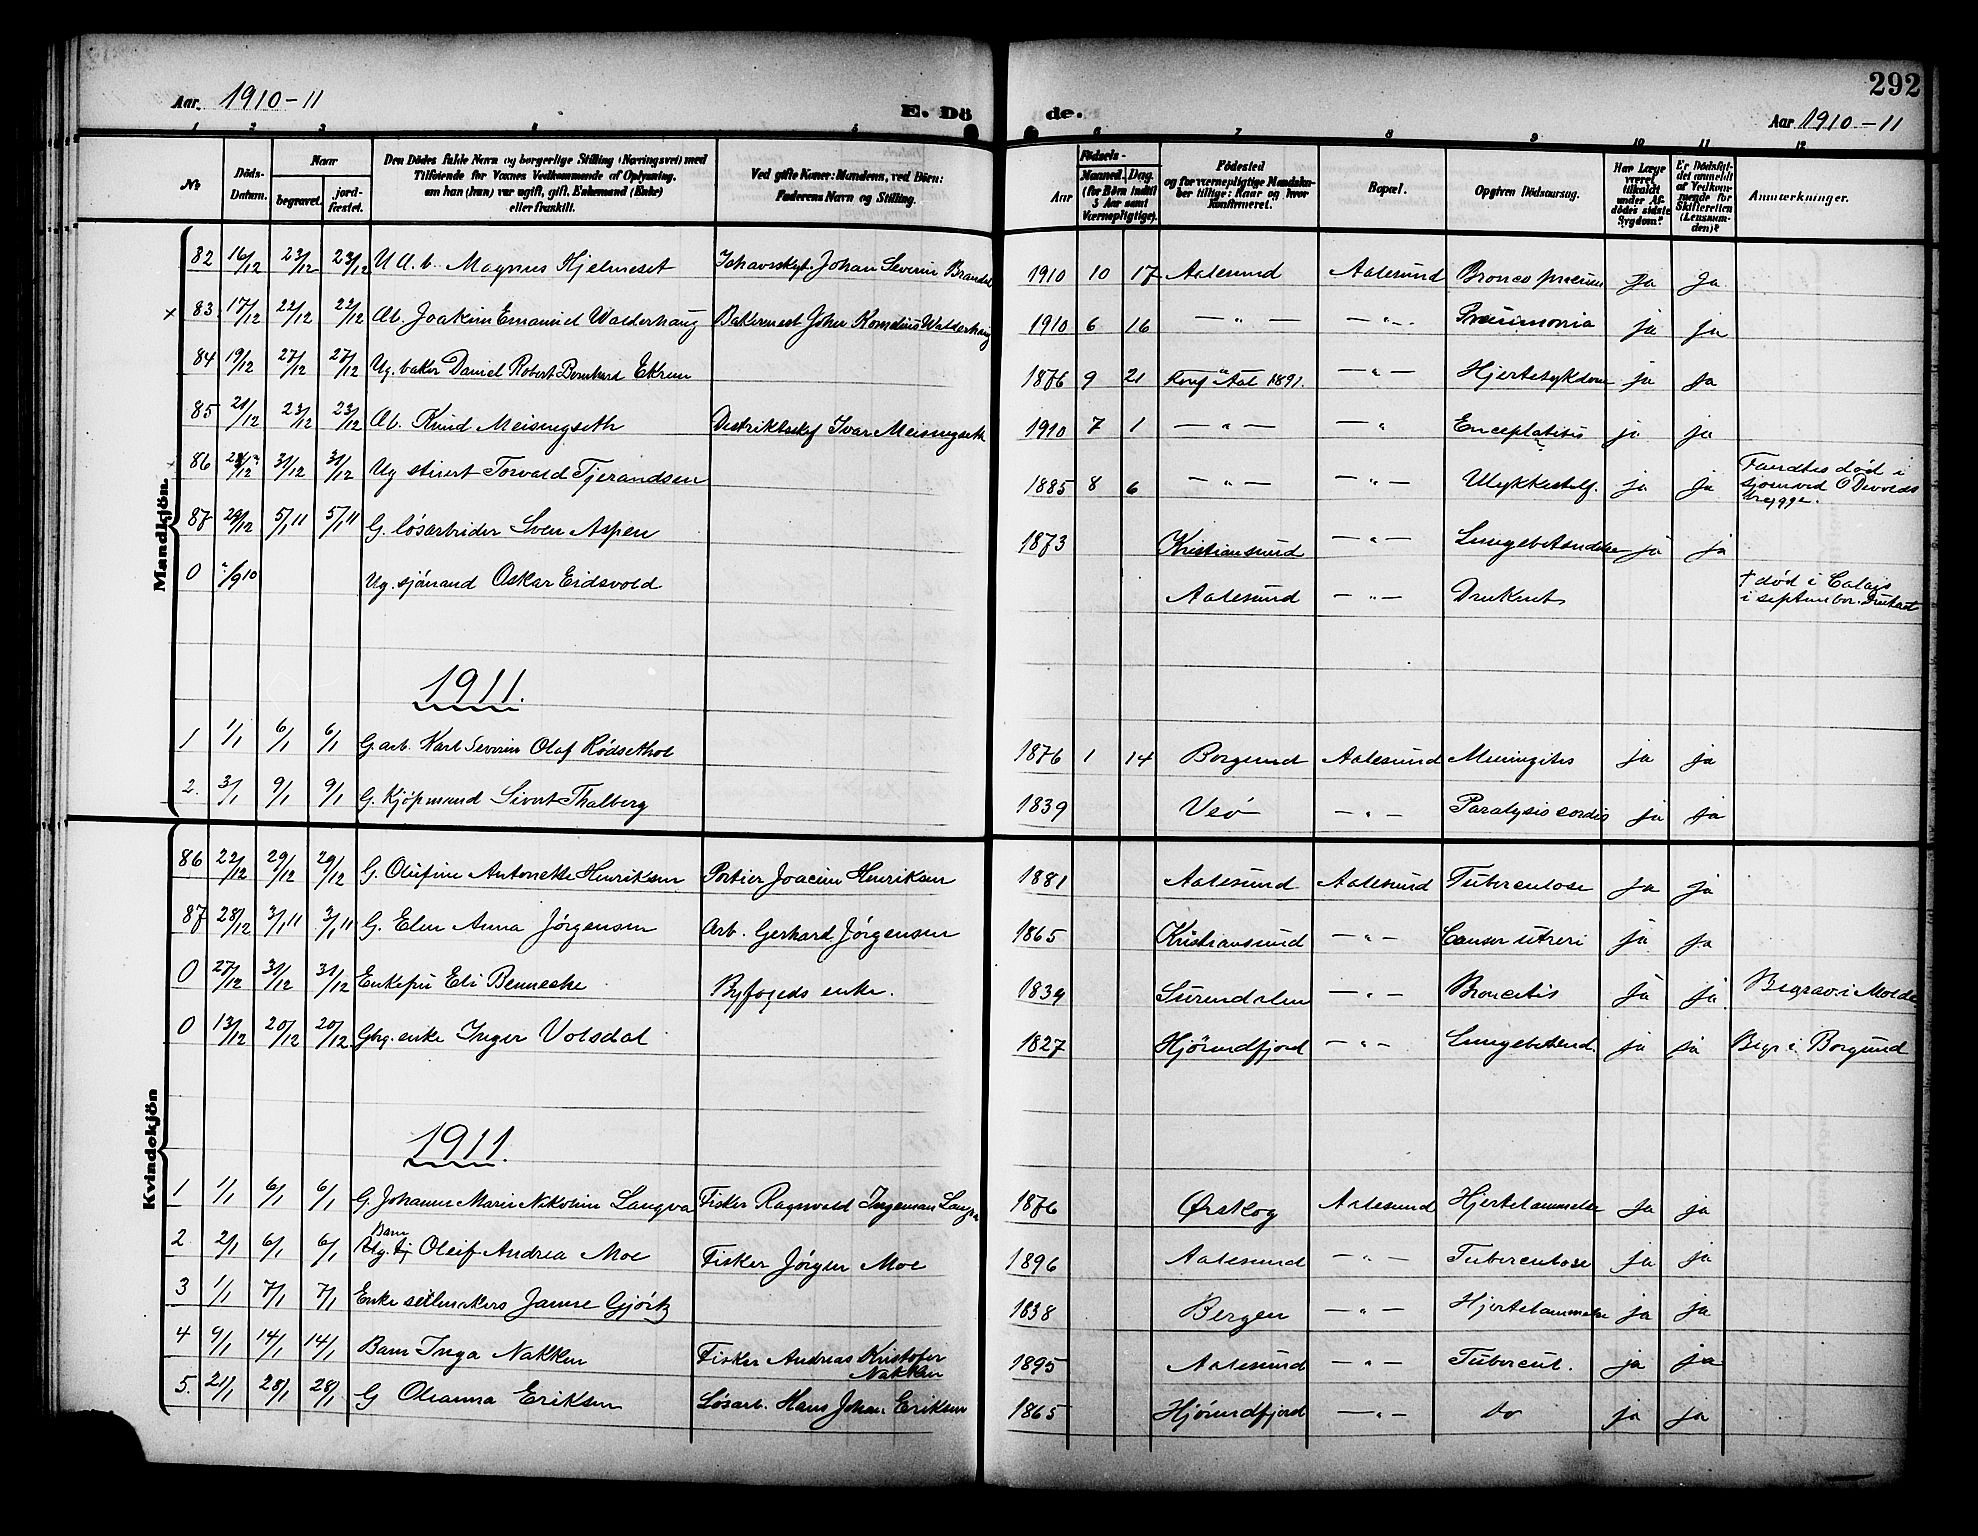 292
Aar. 1910-11
E. Dö de.
Aar 1910-11
1 2 3 4 5 6 7 8 9 10 11 12
No
Döds-Datum.
Naar
begravet.
jord-fæstet.
Den Dödes fulde Navn og borgerlige Stilling (Næringsvei) med
Tilføiende for Voxnes Vedkommende af Oplysning,
om han (hun) var ugift, gift, Enkemand (Enke)
eller fraskilt.
Ved gifte Koner: Mandens, ved Börn:
Faderens Navn og Stilling.
Födsels-
Aar
Maaned. Dag.
(for Börn indtil
5 Aar samt
Værnepligtige).
Födested
og for værnepligtige Mandskaber tillige: Naar og hvor
konfirmeret.
Bopæl.
Opgiven Dödsaarsag.
Har Læge
været
tilkaldt
under Afdödes sidste
Sygdom?
Er Dödsfaldet anmeldt
af Vedkommende for
Skifteretten
(Lensmanden)?
Anmærkninger.
Mandkjön.
82 16/12 23/12 23/12 U Æ. b. Magnus Hjelmeset Johan Severin Brandal 1910 10 17 Aalesund Aalesund Ja Ja
83 17/12 22/12 22/12 Æb. Joakim Emanuel Walderhaug Johan Kornelius Walderhaug 1910 6 16 — " — — " — Pneumonia ja ja
84 19/12 27/12 27/12 Ug. baker Daniel Robert Bernhard Ekrem 1876 9 21 Konf Aal 1891. — " — Hjertesykdom ja ja
85 21/12 23/12 23/12 Æb. Knud Meisingseth Ivar Meisingseth 1910 7 1 — " — — " ja ja
86 31/12 31/12 Ug stuert Torvald Tjerandsen 1885 8 6 — " — — " — Ulykkestilf. ja ja Fandtes død i
sjøen ved O Devolds
brygge.
87 29/12 5/1 11 5/1 11 G. løsarbeider Sven Aspen 1873 Kristiansund — " — Lungebetændelse ja ja
0 Ug. sjömand Oskar Eidsvold Aalesund — " — Druknet † død i Calais
i september. Druknet
1911.
1 1/1 6/1 6/1 G. arb. Karl Severin Olaf Rødsethol 1876 1 14 Borgund Aalesund Meningitis ja ja
2. 3/1 9/1 9/1 G. Kjöpmand Sivert Thalberg 1839 Veö — " — Paralysis cordis ja ja
Kvindekjön
86 22/12 29/12 29/12 G. Olufine Antonette Henriksen Portier Joacim Henriksen 1881 Aalesund Aalesund Tuberculose Ja ja
87 28/12 3/1 11 3/1 11 G. Elen Anna Jørgensen Arb. Gerhard Jørgensen 1865 Kristiansund — " — Canser uteri ja ja
0 27/12 31/12 31/12 Enkefru Eli Benneche Byfogeds enke. 1839 Surendalen — " — Broncitis Ja ja Begrav. i Molde
0 13/12 20/12 20/12. Gbrg. enke Inger Volsdal 1827 Hjörundfjord — " — Lungebetænd. ja ja Begr i Borgund
1911.
1 1/1 6/1 6/1 G. Johanne Marie Nikoline Langva Fisker Ragnvald Ingeman Langva 1876 Ørskog Aalesund Hjertelammelse Ja ja
Barn
2 2/1 6/1 6/1 Oleif Andrea Moe Fisker Jørgen Moe 1896 Aalesund — " — Tuberculose ja ja
3 1/1 7/1 7/1 Enke seilmakers Janne Gjørtz 1838 Bergen — " — Hjertelammelse ja ja
4 9/1 14/1 14/1 Barn Inga Nakken Fisker Andreas Kristofer
Nakken 1895 Aalesund — " — Tubercul. ja ja
5. 21/1 28/1 28/1 G Oleanna Eriksen Løsarb. Hans Johan Eriksen 1865 Hjörundfjord — " — do ja ja